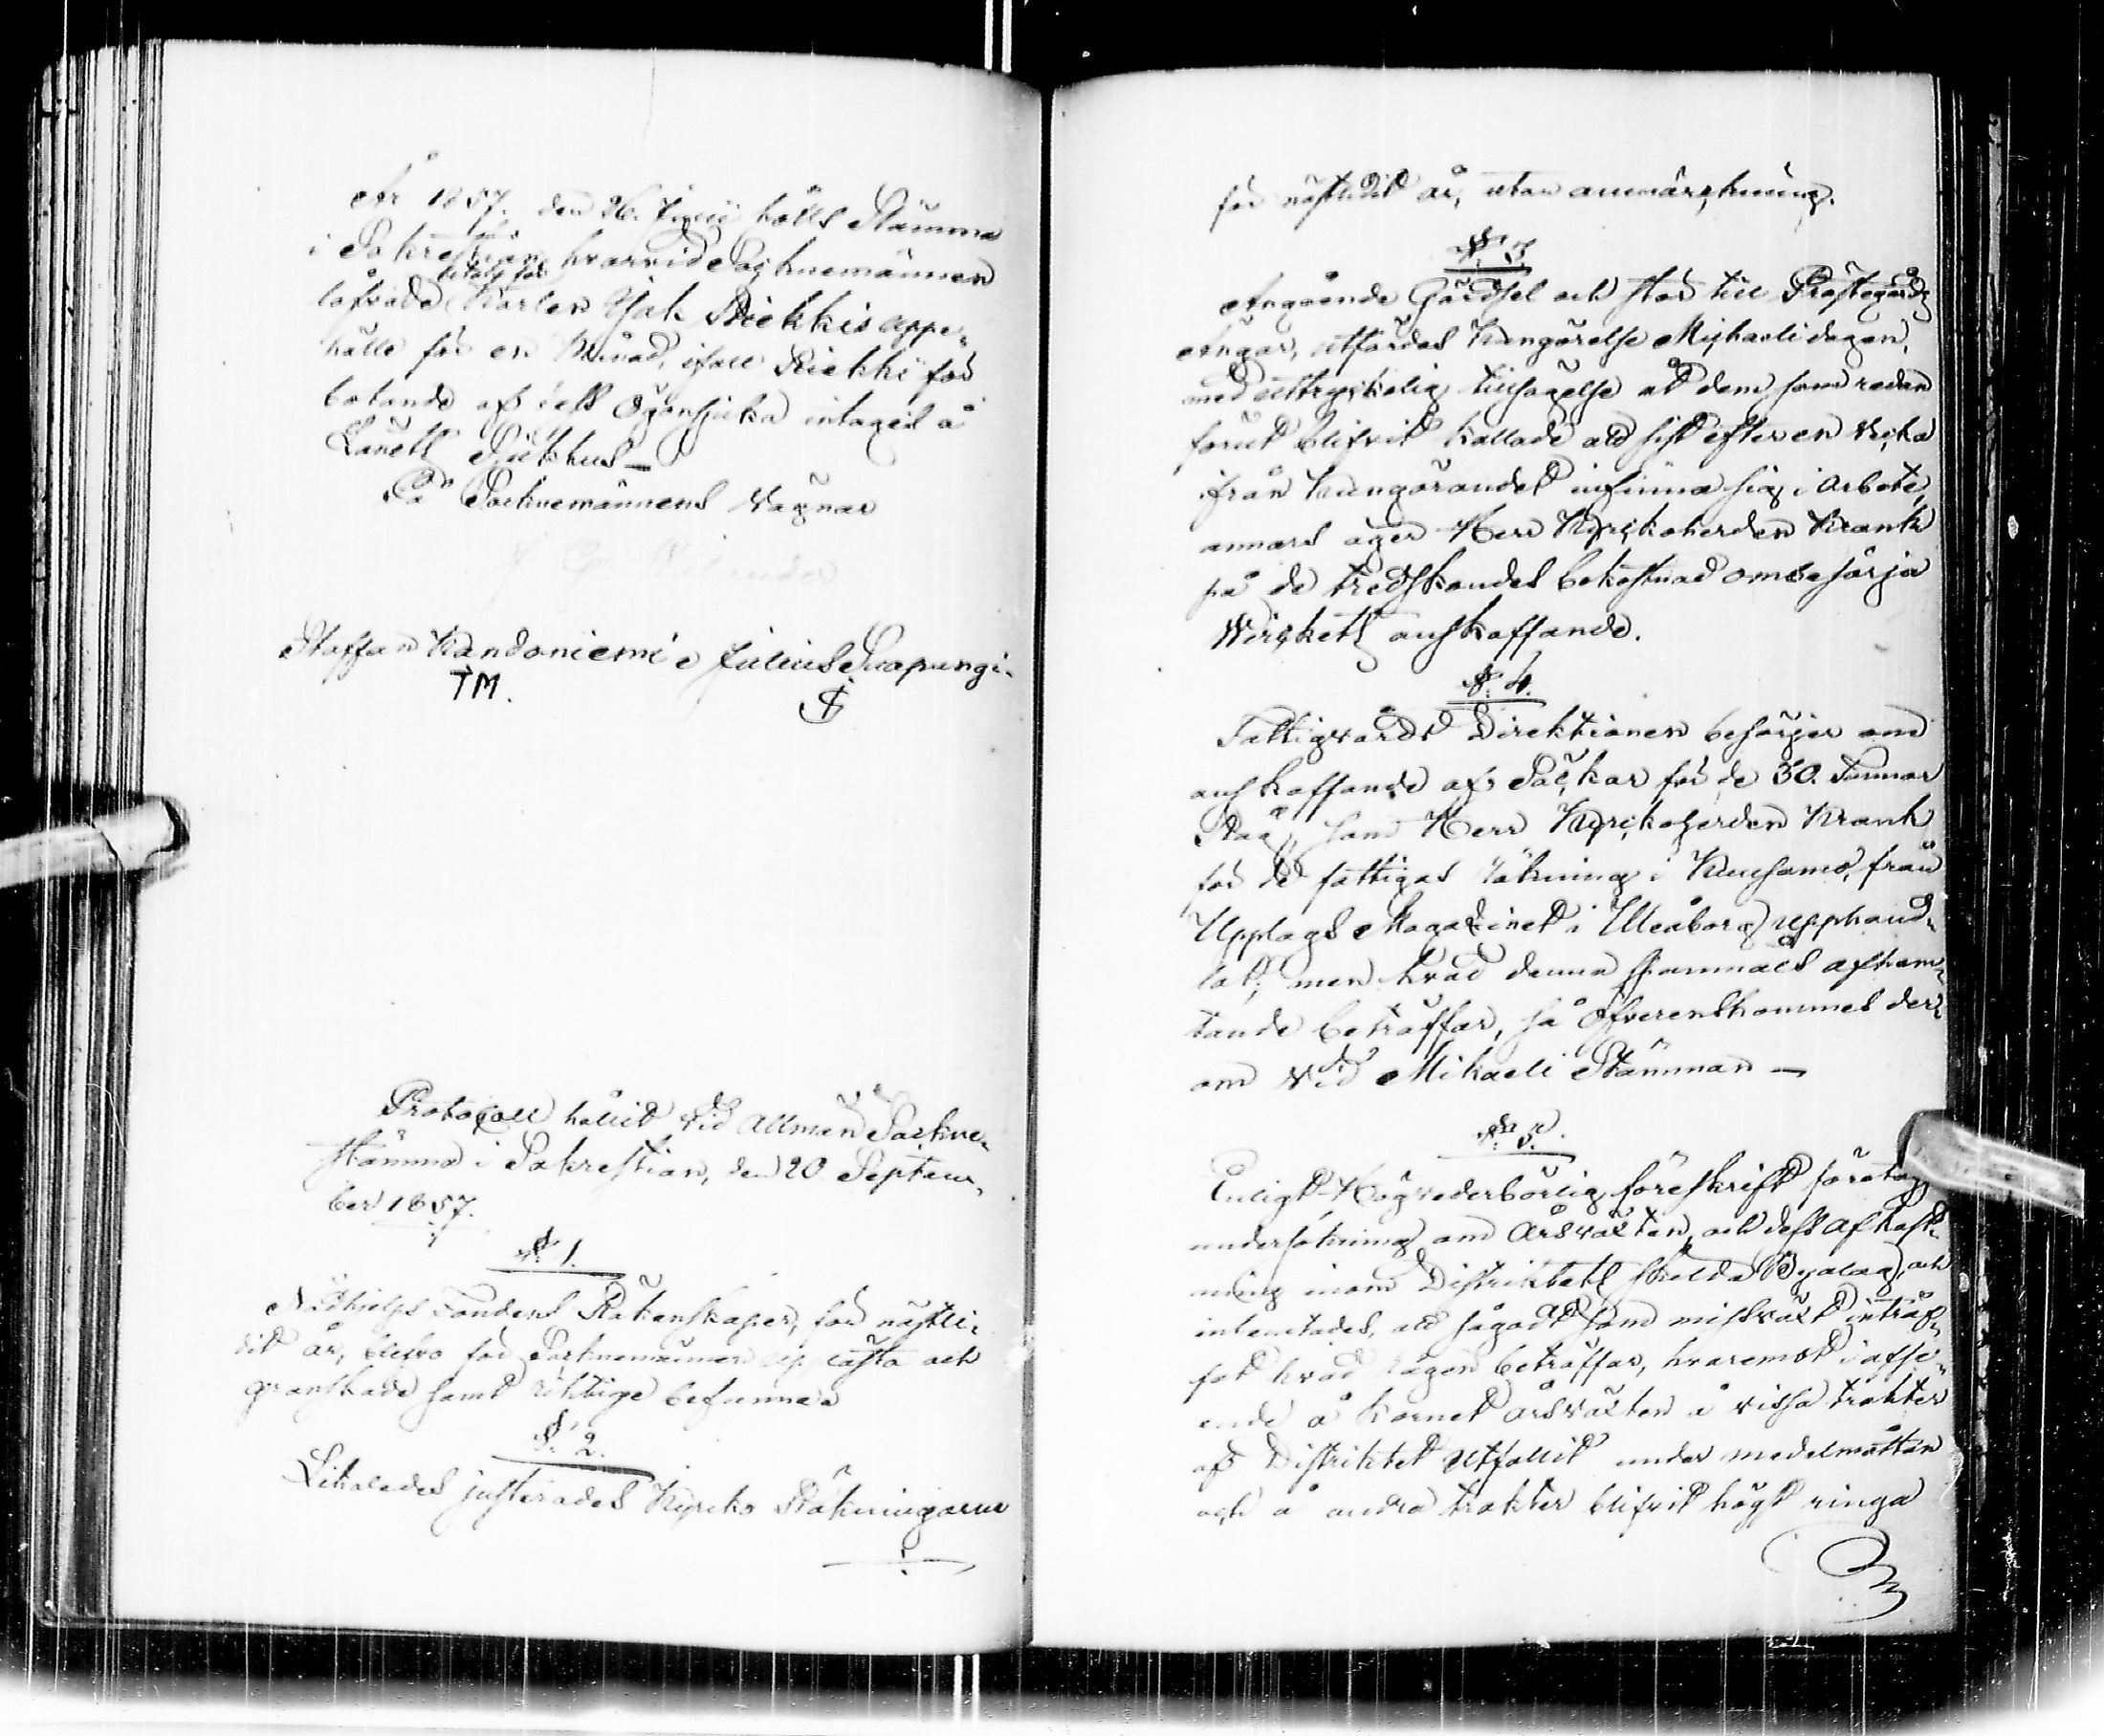 År 1857. den 26. Junii hölls Stämma
i Sakrestian, hvarvid Socknemännen
betala för
låfvade Karlen Isak Riekkis uppe-
hälle för en Månad, ifall Riekki för
botande af dess Ögonsjuka intages å
Länets Sjukhus —
På Socknemännens Vägnar
Staffan Kandoniemi Julius Suopungi.
TM.
Protocoll hållit vid Allmän Sockne-
stämma i Sakrestian, den 20 Septem-
ber 1857.
§ 1.
Nödhjelps Fondens Räkenskaper, för nästli-
dit år, blefvo för Socknemännen upplästa och
granskade samt riktige befunna
§ 2.
Likaledes justerades Kyrko Räkningarne
för nästlidit år, utan anmärkning.
§ 3.
Angående Gärdsel och stör till Prästegårds
Ängar, utfärdas Kungörelse Michaeli dagen,
med uttryckelig tillsägelse åt dem som redan
förut blifvit kallade att sist efter en Vecka
ifrån kungörandet infinna sig i Arbete,
annars äger Herr Kyrckoherden Krank
på de tredskandes bekostnad ombesörja
Virkets anskaffande.
§ 4.
Fattigvårds Direktionen besörjer om
anskaffande af Säckar för de 30. Tunnor
Råg, som Herr Kyrckoherden Krank
för de fattigas räkning i Kuusamo, från
Upplags Magazinet i Uleåborg upphand-
lat; men hvad denna spannmåls afhem-
tande beträffar, så Öfverenskommes der-
om vid Mikaeli Stämman —
§ 5.
Enligt Högvederbörlig föreskrift företogs
undersökning om Årsväxten, och dess Afkast-
ning inom Distriktets skilda Byalag, och
inhemtades, att sågodt som missväxt inträf-
fat hvad rågen beträffar, hvaremot i afse-
ende å kornet årsväxten å vissa trakter
af Distriktet utfallit under medelmåttan
och å andra trakter blifvit högst ringa